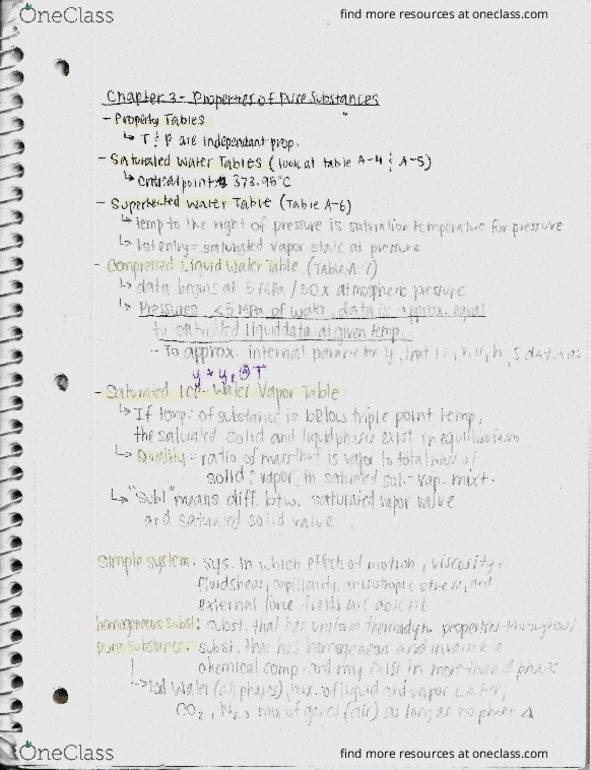 OneClass
find more resources at oneclass.com
Chapter 3 - Properties of Pure Substances
- Property Tables
↳ T & P are independant prop.
- Saturated Water Tables (look at table A-4 & A-5)
↳ Critical point 373.95°C
- Superheated Water Table (Table A-6)
↳ temp to the right of pressure is saturation temperature for pressure
↳ 1st entry = saturated vapor state at pressure
- Compressed Liquid Water Table (Table A-7)
↳ data begins at 5 MPa / 50x atmospheric pressure
↳ Pressures <5 MPa of water, data is approx. equal
to saturated liquid data at given temp.
- To approx. internal parameter y, that is, v, u, h, s data as
y ≈ yf @ T
- Saturated Ice-Water Vapor Table
↳ If temp. of substance is below triple point temp,
the saturated solid and liquid phases exist in equilibrium
↳ Quality = ratio of mass that is vapor to total mass of
solid & vapor, in saturated sol.-vap. mixt.
↳ "Subl" means diff. btw. saturated vapor valve
and saturated solid valve
Simple system: sys. in which effects of motion, viscosity,
fluid shear, capillarity, anisotropic stress, and
external force fields are absent
homogeneous subst: subst. that has uniform thermodyn. properties throughout
pure substance: subst. that has homogeneous and invariable
chemical comp. and may exist in more than 1 phase
Water (all phases), mix. of liquid and vapor water,
CO2, N2, mix of gases (air) as long as no phase Δ
OneClass
find more resources at oneclass.com